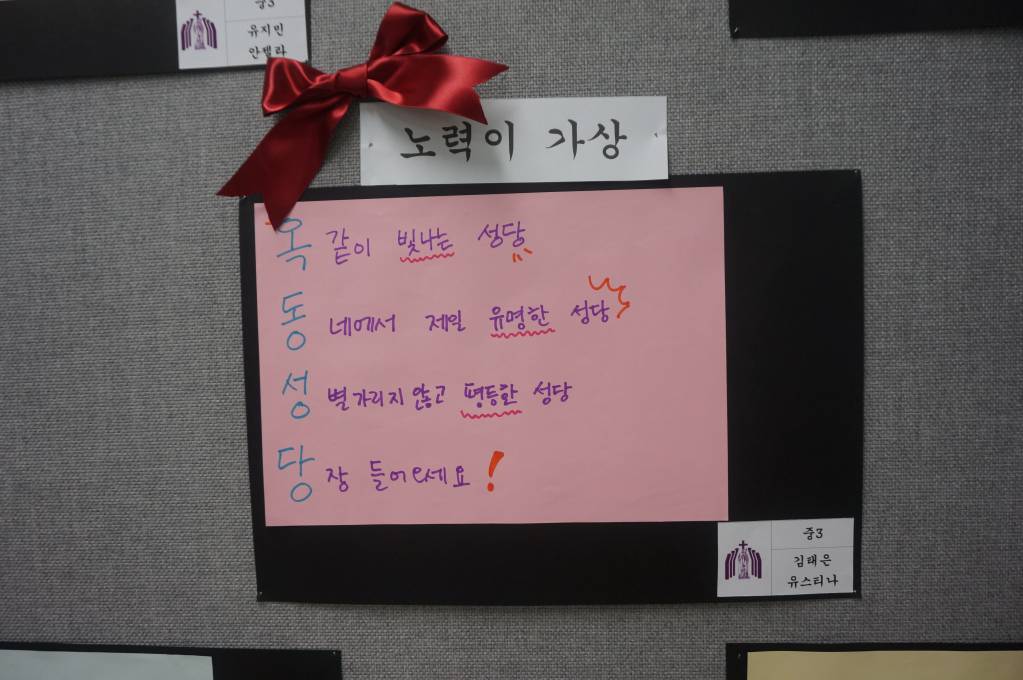 중3
유지민
안젤라
노력이 가상
옥 같이 빛나는 성당
동 네에서 제일 유명한 성당
성 별 가리지 않고 평등한 성당
당 장 들어오세요!
중3
김태은
유스티나